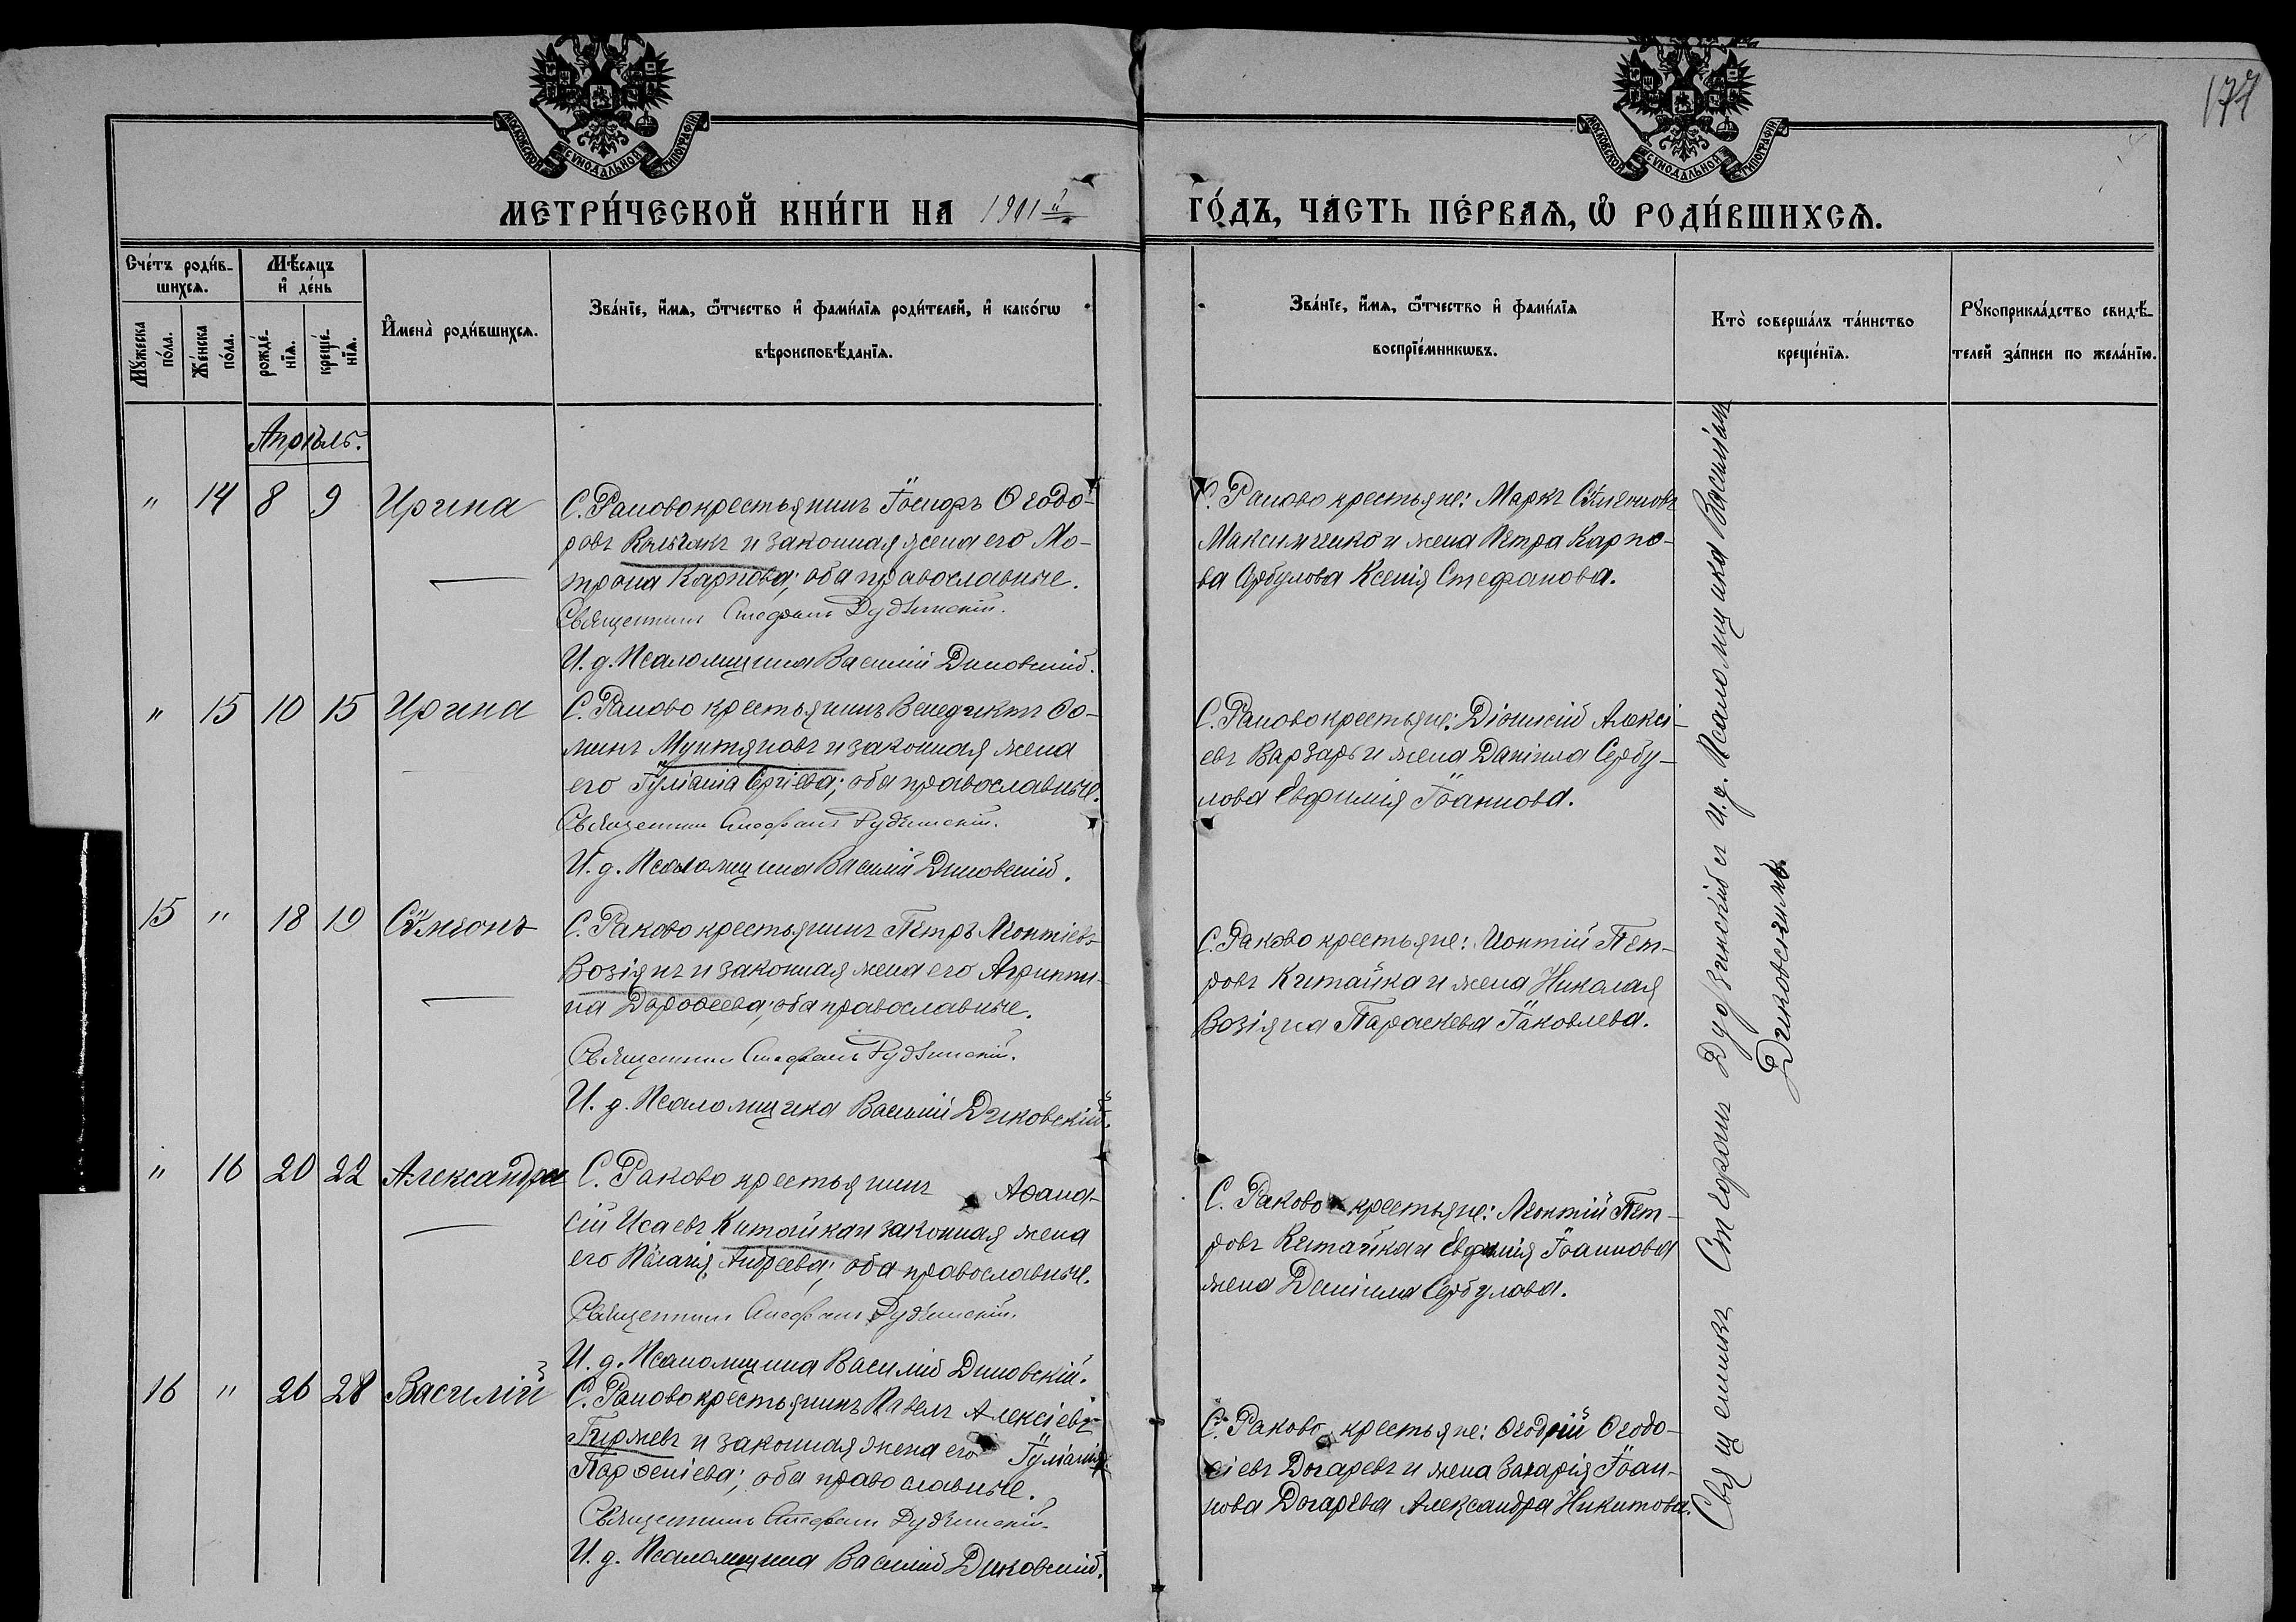 174
МОСКОВСКОЙ СѴНОДАЛЬНОЙ ТИПОГРАФІИ
МОСКОВСКОЙ СѴНОДАЛЬНОЙ ТИПОГРАФІИ
МЕТРИ́ЧЕСКОЙ КНИ́ГИ НА 1901й ГО́ДЪ, ЧА́СТЬ ПЕ́РВАѦ, Ѽ РОДИ́ВШИХСѦ.
Сче́тъ роди́в-
шихсѧ.
Мꙋ́жеска
по́ла.
Же́нска
по́ла.
Мѣ́сѧцъ
и҆ де́нь
рожде́-
нїѧ.
креще́-
нїѧ.
И҆мена̀ роди́вшихсѧ.
Зва́нїе, и҆́мѧ, ѻ҆́тчество и҆ фами́лїѧ роди́телей, и҆ како́гѡ
вѣроисповѣ́данїѧ.
Зва́нїе, и҆́мѧ, ѻ҆́тчество и҆ фами́лїѧ
воспрїе́мникѡвъ.
Кто̀ соверша́лъ та́инство
креще́нїѧ.
Рꙋкоприкла́дство свидѣ́-
телей за́писи по жела́нїю.
Апрѣль.
" 14 8 9 Ирина
С. Раково крестьянинъ Іосифъ Ѳеодо-
ровъ и законная жена его Мо-
трона Карпова; оба православные.
Священникъ Стефанъ Рудзинскій.
И. д. Псаломщика Василій Диковскій.
С. Раково крестьяне: Маркъ Сѵмеоновъ
Максимченко и жена Петра Карпо-
ва Сербулова Ксенія Стефанова.
" 15 10 15 Ирина
С. Раково крестьянинъ Венедиктъ Ѳо-
минъ Мунтяновъ и законная жена
его Іуліанія Сергіева; оба православные.
Священникъ Стефанъ Рудзинскій.
И. д. Псаломщика Василій Диковскій.
С. Раково крестьяне: Діонисій Алексі-
евъ Варзарь и жена Даніила Сербу-
лова Евфимія Іоаннова.
15 " 18 19 Сѵмеонъ
С. Раково крестьянинъ Петръ Леонтіевъ
Возіянъ и законная жена его Агриппи-
на Дороѳеева; оба православные.
Священникъ Стефанъ Рудзинскій.
И. д. Псаломщика Василій Диковскій.
С. Раково крестьяне: Леонтій Пет-
ровъ Китайка и жена Николая
Возіяна Параскева Іаковлева.
" 16 20 22 Александра
С. Раково крестьянинъ Аѳана-
сій Исаевъ Китайка и законная жена
его Пелагія Андреева; оба православные.
Священникъ Стефанъ Рудзинскій.
И. д. Псаломщика Василій Диковскій.
С. Раково крестьяне: Леонтій Пет-
ровъ Китайка и Евфимія Іоаннова
жена Даніила Сербулова.
16 " 26 28 Василій
С. Раково крестьянинъ Павелъ Алексіевъ
Гиржевъ и законная жена его Іуліанія
Парѳеніева; оба православные.
Священникъ Стефанъ Рудзинскій.
И. д. Псаломщика Василій Диковскій.
С. Раково крестьяне: Ѳеодосій Ѳеодо-
сіевъ Догаревъ и жена Захарія Іоан-
нова Догарева Александра Никитова.
Священникъ Стефанъ Рудзинскій съ И. д. Псаломщика Василіемъ
Диковскимъ.